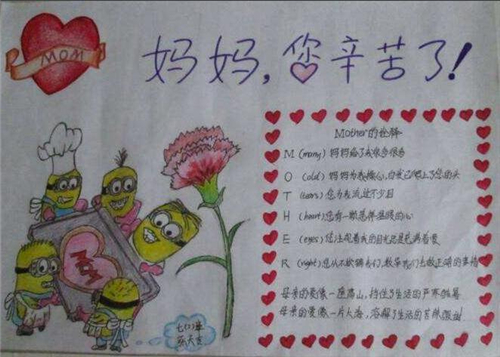 MOM
妈妈,您辛苦了!
Mother的诠释
M (many) 妈妈给了我很多很多
O (old) 妈妈为我操心,白发已爬上了您的头
T (tears) 您为我流过不少泪
H (heart) 您有一颗慈祥温暖的心
E (eyes) 您注视着我的目光总是充满着爱
R (right) 您从不欺骗我们,教导我们去做正确的事情
母亲的爱像一座高山,挡住了生活的严寒酷暑
母亲的爱像一片大海,溶解了生活的苦辣
MOM